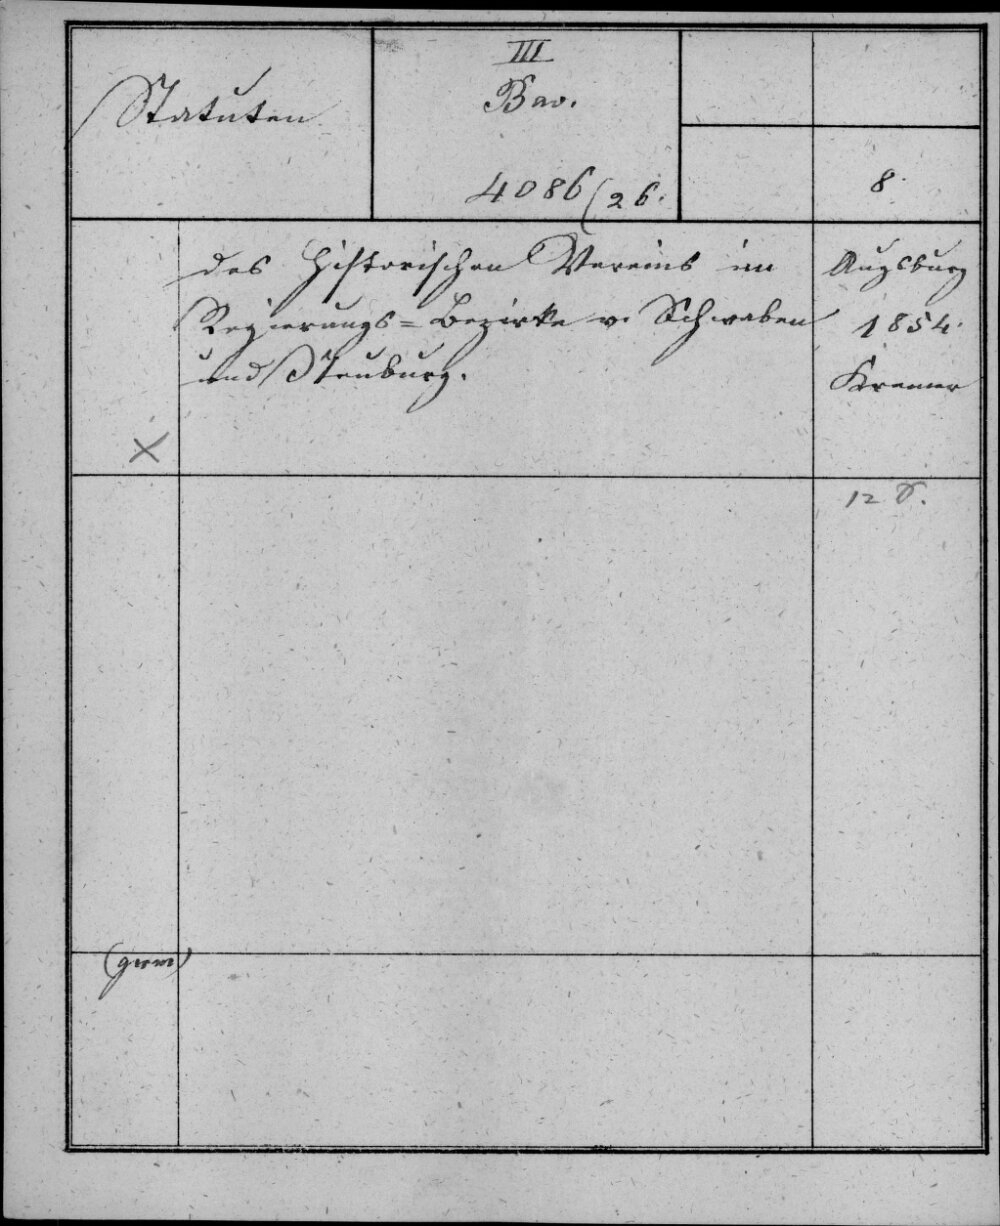 Statuten
III
Bav.
4086(26.
8.
des Historischen Vereins im
Regierungs=Bezirke v. Schwaben
und Neuburg.
Augsburg
1854.
Kremer
12 S.
(germ)